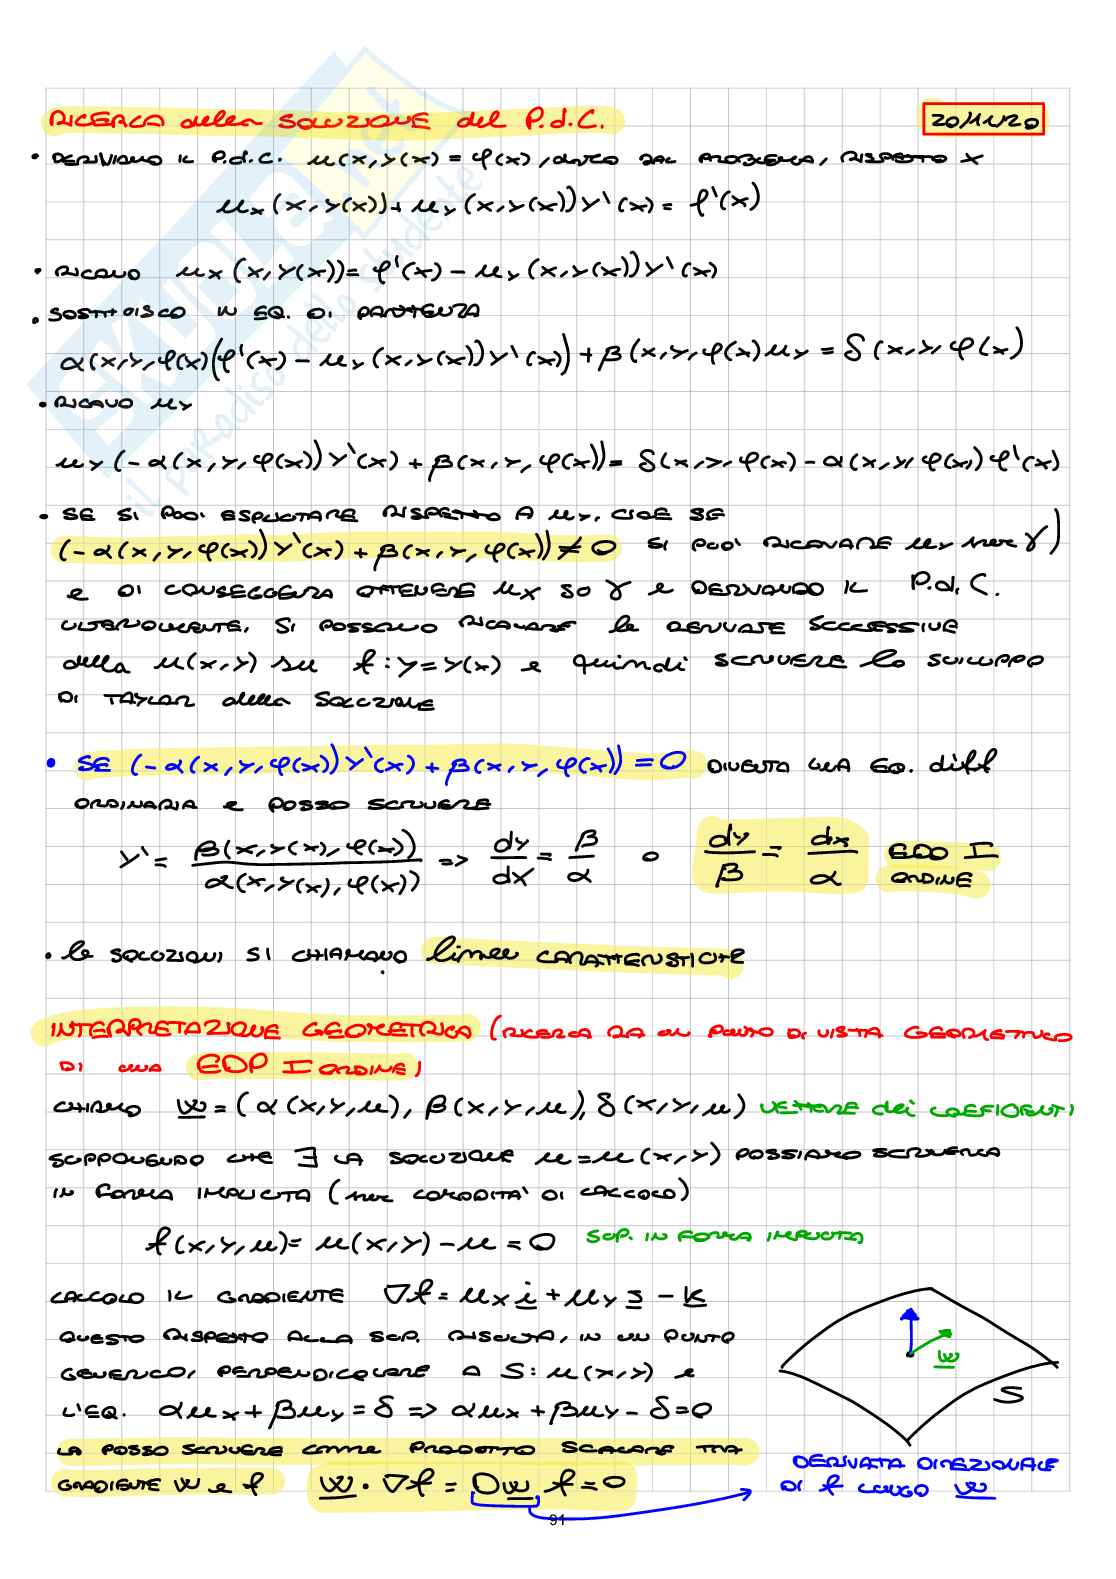 RICERCA della SOLUZIONE del P.d.C.
20/11/20
• DERIVIAMO IL P.d.C. u(x,y(x)) = φ(x), dato DAL PROBLEMA, RISPETTO X
u_x(x,y(x)) + u_y(x,y(x)) y'(x) = φ'(x)
• RICAVO u_x(x,y(x)) = φ'(x) - u_y(x,y(x)) y'(x)
• SOSTITUISCO IN EQ. DI PARTENZA
α(x,y,φ(x)(φ'(x) - u_y(x,y(x)) y'(x)) + β(x,y,φ(x) u_y = δ(x,y,φ(x)
• RICAVO u_y
u_y(-α(x,y,φ(x)) y'(x) + β(x,y,φ(x))) = δ(x,y,φ(x) - α(x,y,φ(x,) φ'(x)
• SE SI PUO' ESPLICITARE RISPETTO A u_y, CIOE SE
(-α(x,y,φ(x)) y'(x) + β(x,y,φ(x)) ≠ 0 SI PUO' RICAVARE u_y per γ)
e DI CONSEGUENZA OTTENERE u_x SU γ e DERIVANDO IL P.d.C.
ULTERIORMENTE, SI POSSONO RICAVARE le DERIVATE SUCCESSIVE
della u(x,y) su f: y=y(x) e quindi SCRIVERE lo SVILUPPO
DI TAYLOR della SOLUZIONE
• SE (-α(x,y,φ(x)) y'(x) + β(x,y,φ(x)) = 0 DIVENTA UNA EQ. diff
ORDINARIA e POSSO SCRIVERE
y' = β(x,y(x),φ(x)) / α(x,y(x),φ(x)) => dy/dx = β/α o dy/β = dx/α EDO I
ORDINE
• le SOLUZIONI SI CHIAMANO linee CARATTERISTICHE
INTERPRETAZIONE GEOMETRICA (RICERCA DA UN PUNTO DI VISTA GEOMETRICO
DI UNA EDP I ORDINE)
CHIAMO w = (α(x,y,u), β(x,y,u), δ(x,y,u) VETTORE dei COEFICIENTI
SUPPONENDO CHE ∃ LA SOLUZIONE u=u(x,y) POSSIAMO SCRIVERLA
IN FORMA IMPLICITA (per COMODITA' DI CALCOLO)
f(x,y,u) = u(x,y) - u = 0 SUP. IN FORMA IMPLICITA
CALCOLO IL GRADIENTE ∇f = u_x i + u_y j - k
QUESTO RISPETTO ALLA SUP. RISULTA, IN UN PUNTO
GENERICO, PERPENDICOLARE A S: u(x,y) e
L'EQ. αu_x + βu_y = δ => αu_x + βu_y - δ = 0
LA POSSO SCRIVERE come PRODOTTO SCALARE TRA
GRADIENTE W e f w · ∇f = D_w f = 0
w
S
DERIVATA DIREZIONALE
DI f LUNGO w
91
SKUOLA.net
il paradiso dello studente